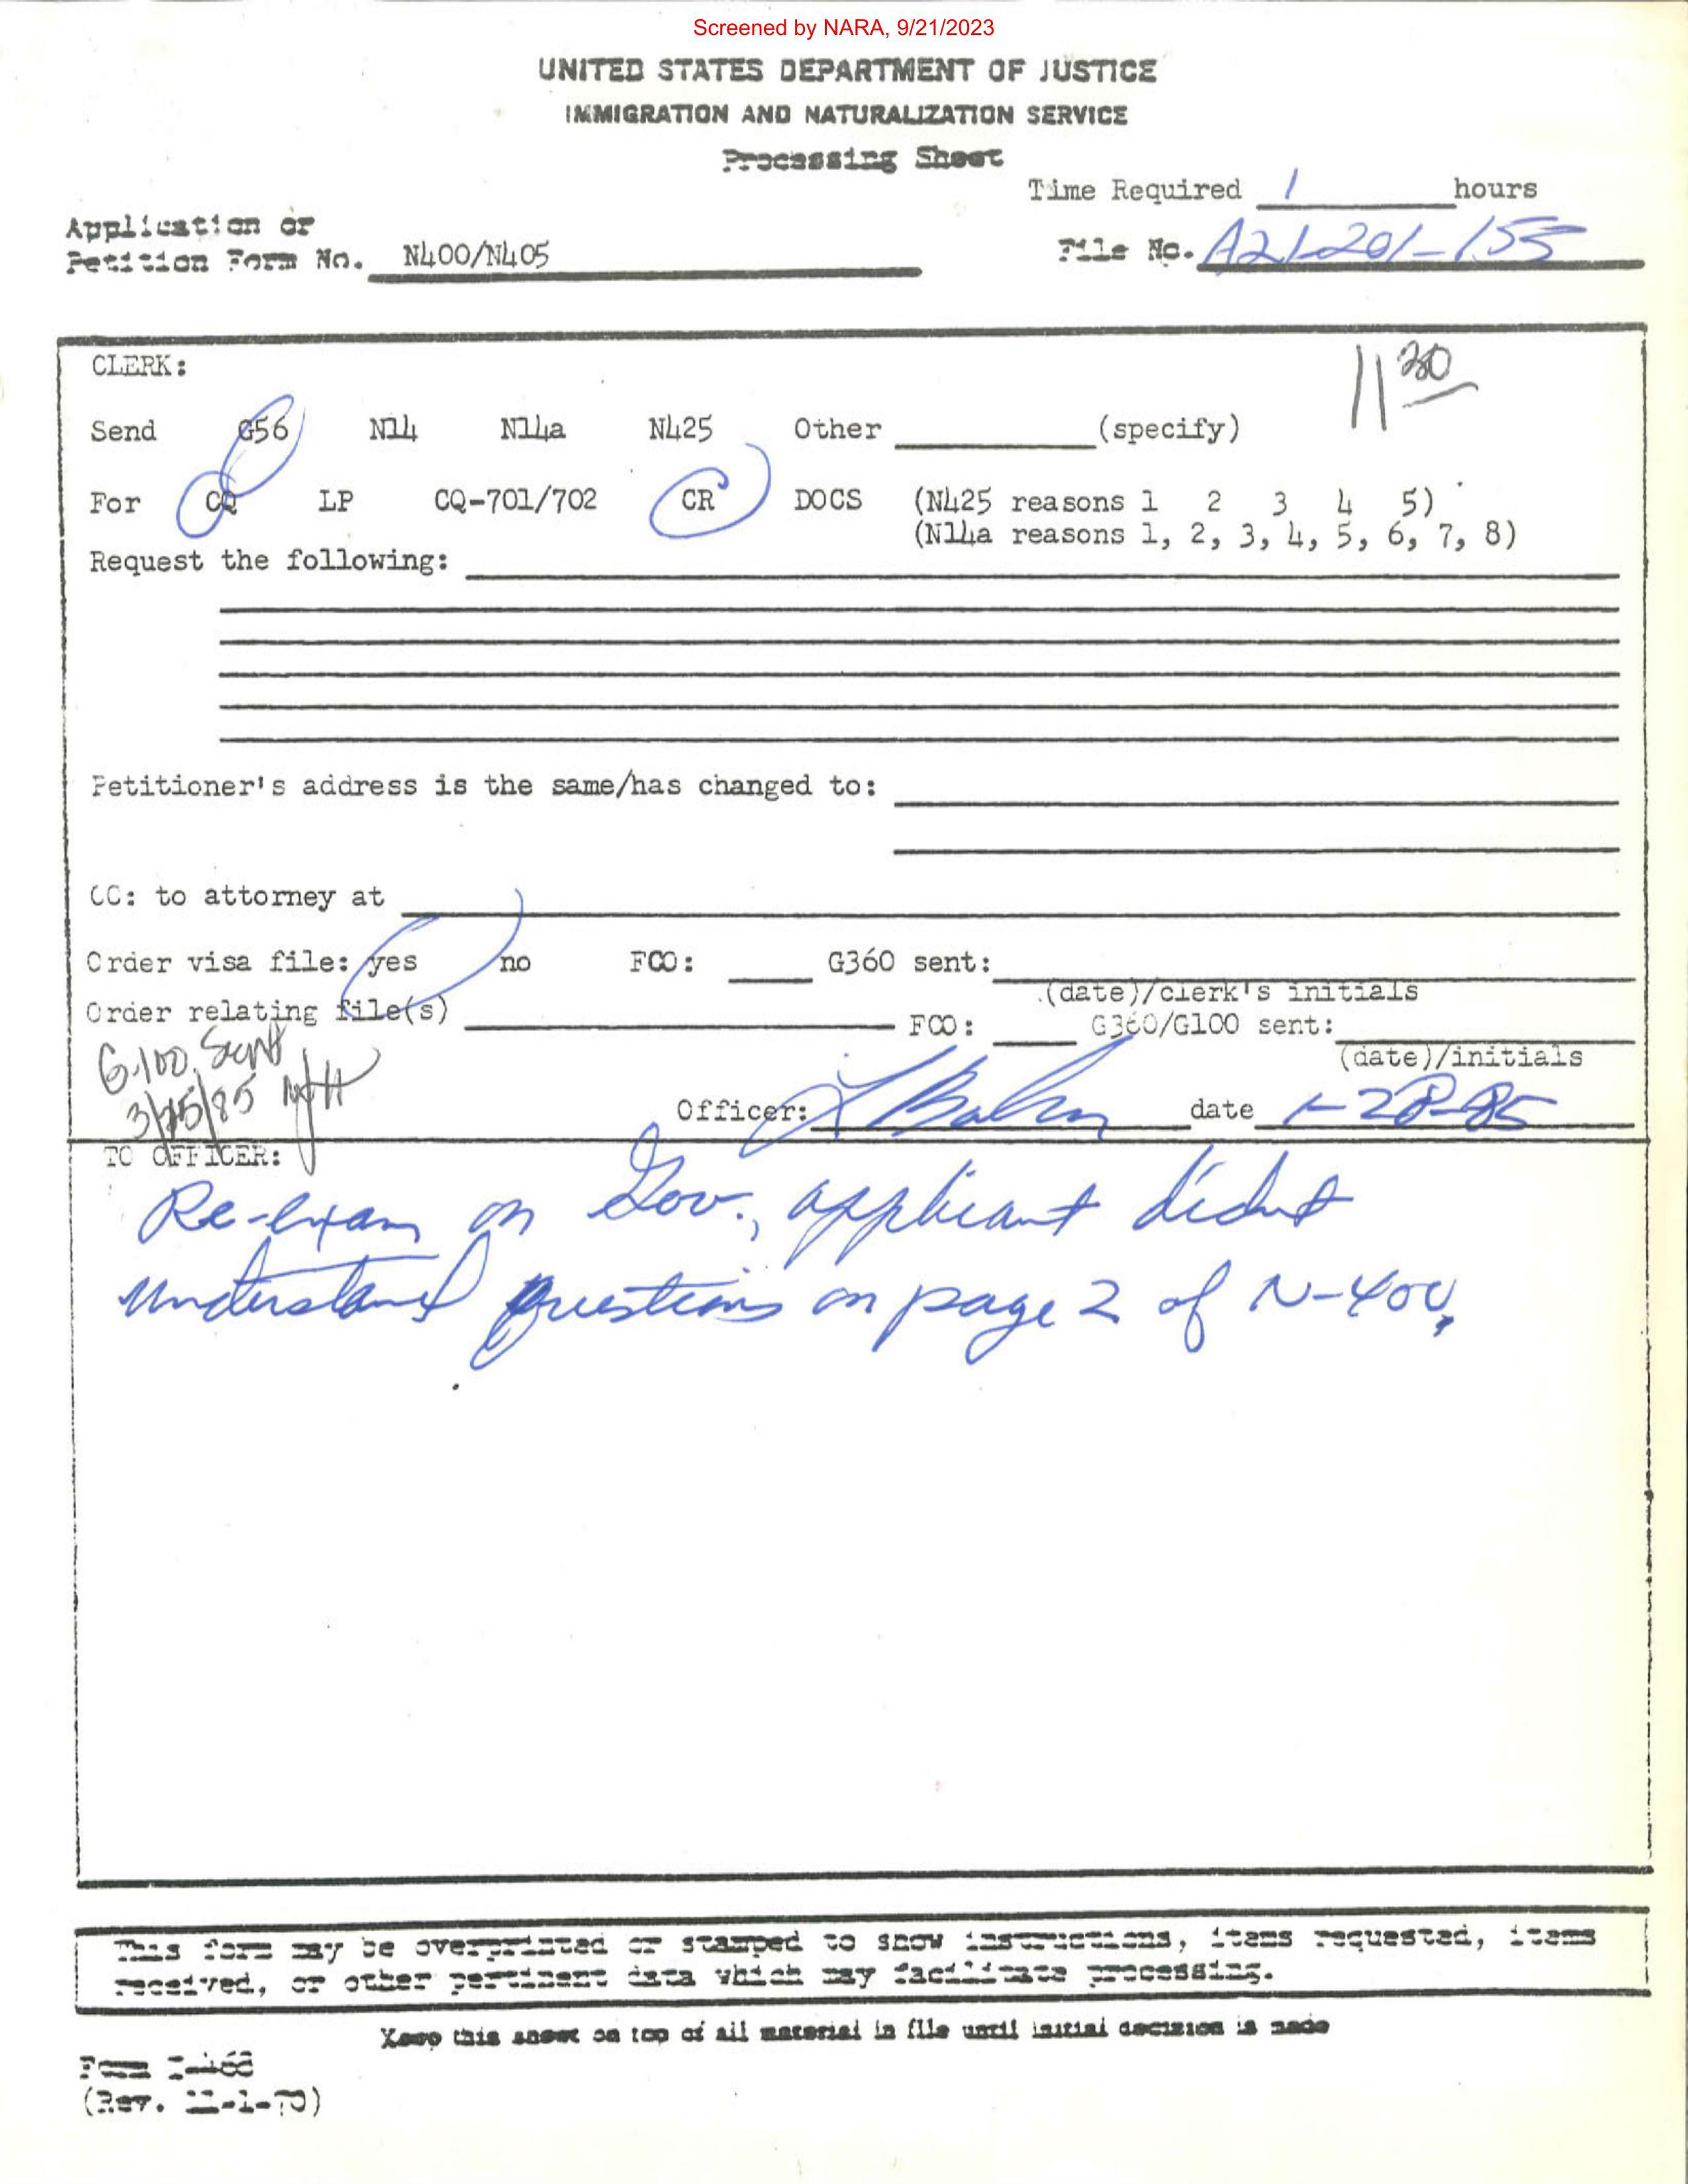 Screened by NARA, 9/21/2023
UNITED STATES DEPARTMENT OF JUSTICE
IMMIGRATION AND NATURALIZATION SERVICE
Processing Sheet
Time Required 1 hours
Application or
Petition Form No. N400/N405
File No. A21-201-155
CLERK:
11 30
Send G56 N14 N14a N425 Other (specify)
For CQ LP CQ-701/702 CR DOCS (N425 reasons 1 2 3 4 5)
(N14a reasons 1, 2, 3, 4, 5, 6, 7, 8)
Request the following:
Petitioner's address is the same/has changed to:
CC: to attorney at
Order visa file: yes no FCO: G360 sent:
(date)/clerk's initials
Order relating file(s) FCO: G360/G100 sent:
(date)/initials
G-100 Sent
3/25/85
Officer: date 1-28-85
TO OFFICER:
Re-exam on Gov., applicant didnt
understand questions on page 2 of N-400.
This form may be overprinted or stamped to show instructions, items requested, items
received, or other pertinent data which may facilitate processing.
Keep this sheet on top of all material in file until initial decision is made
Form I-468
(Rev. 11-1-70)